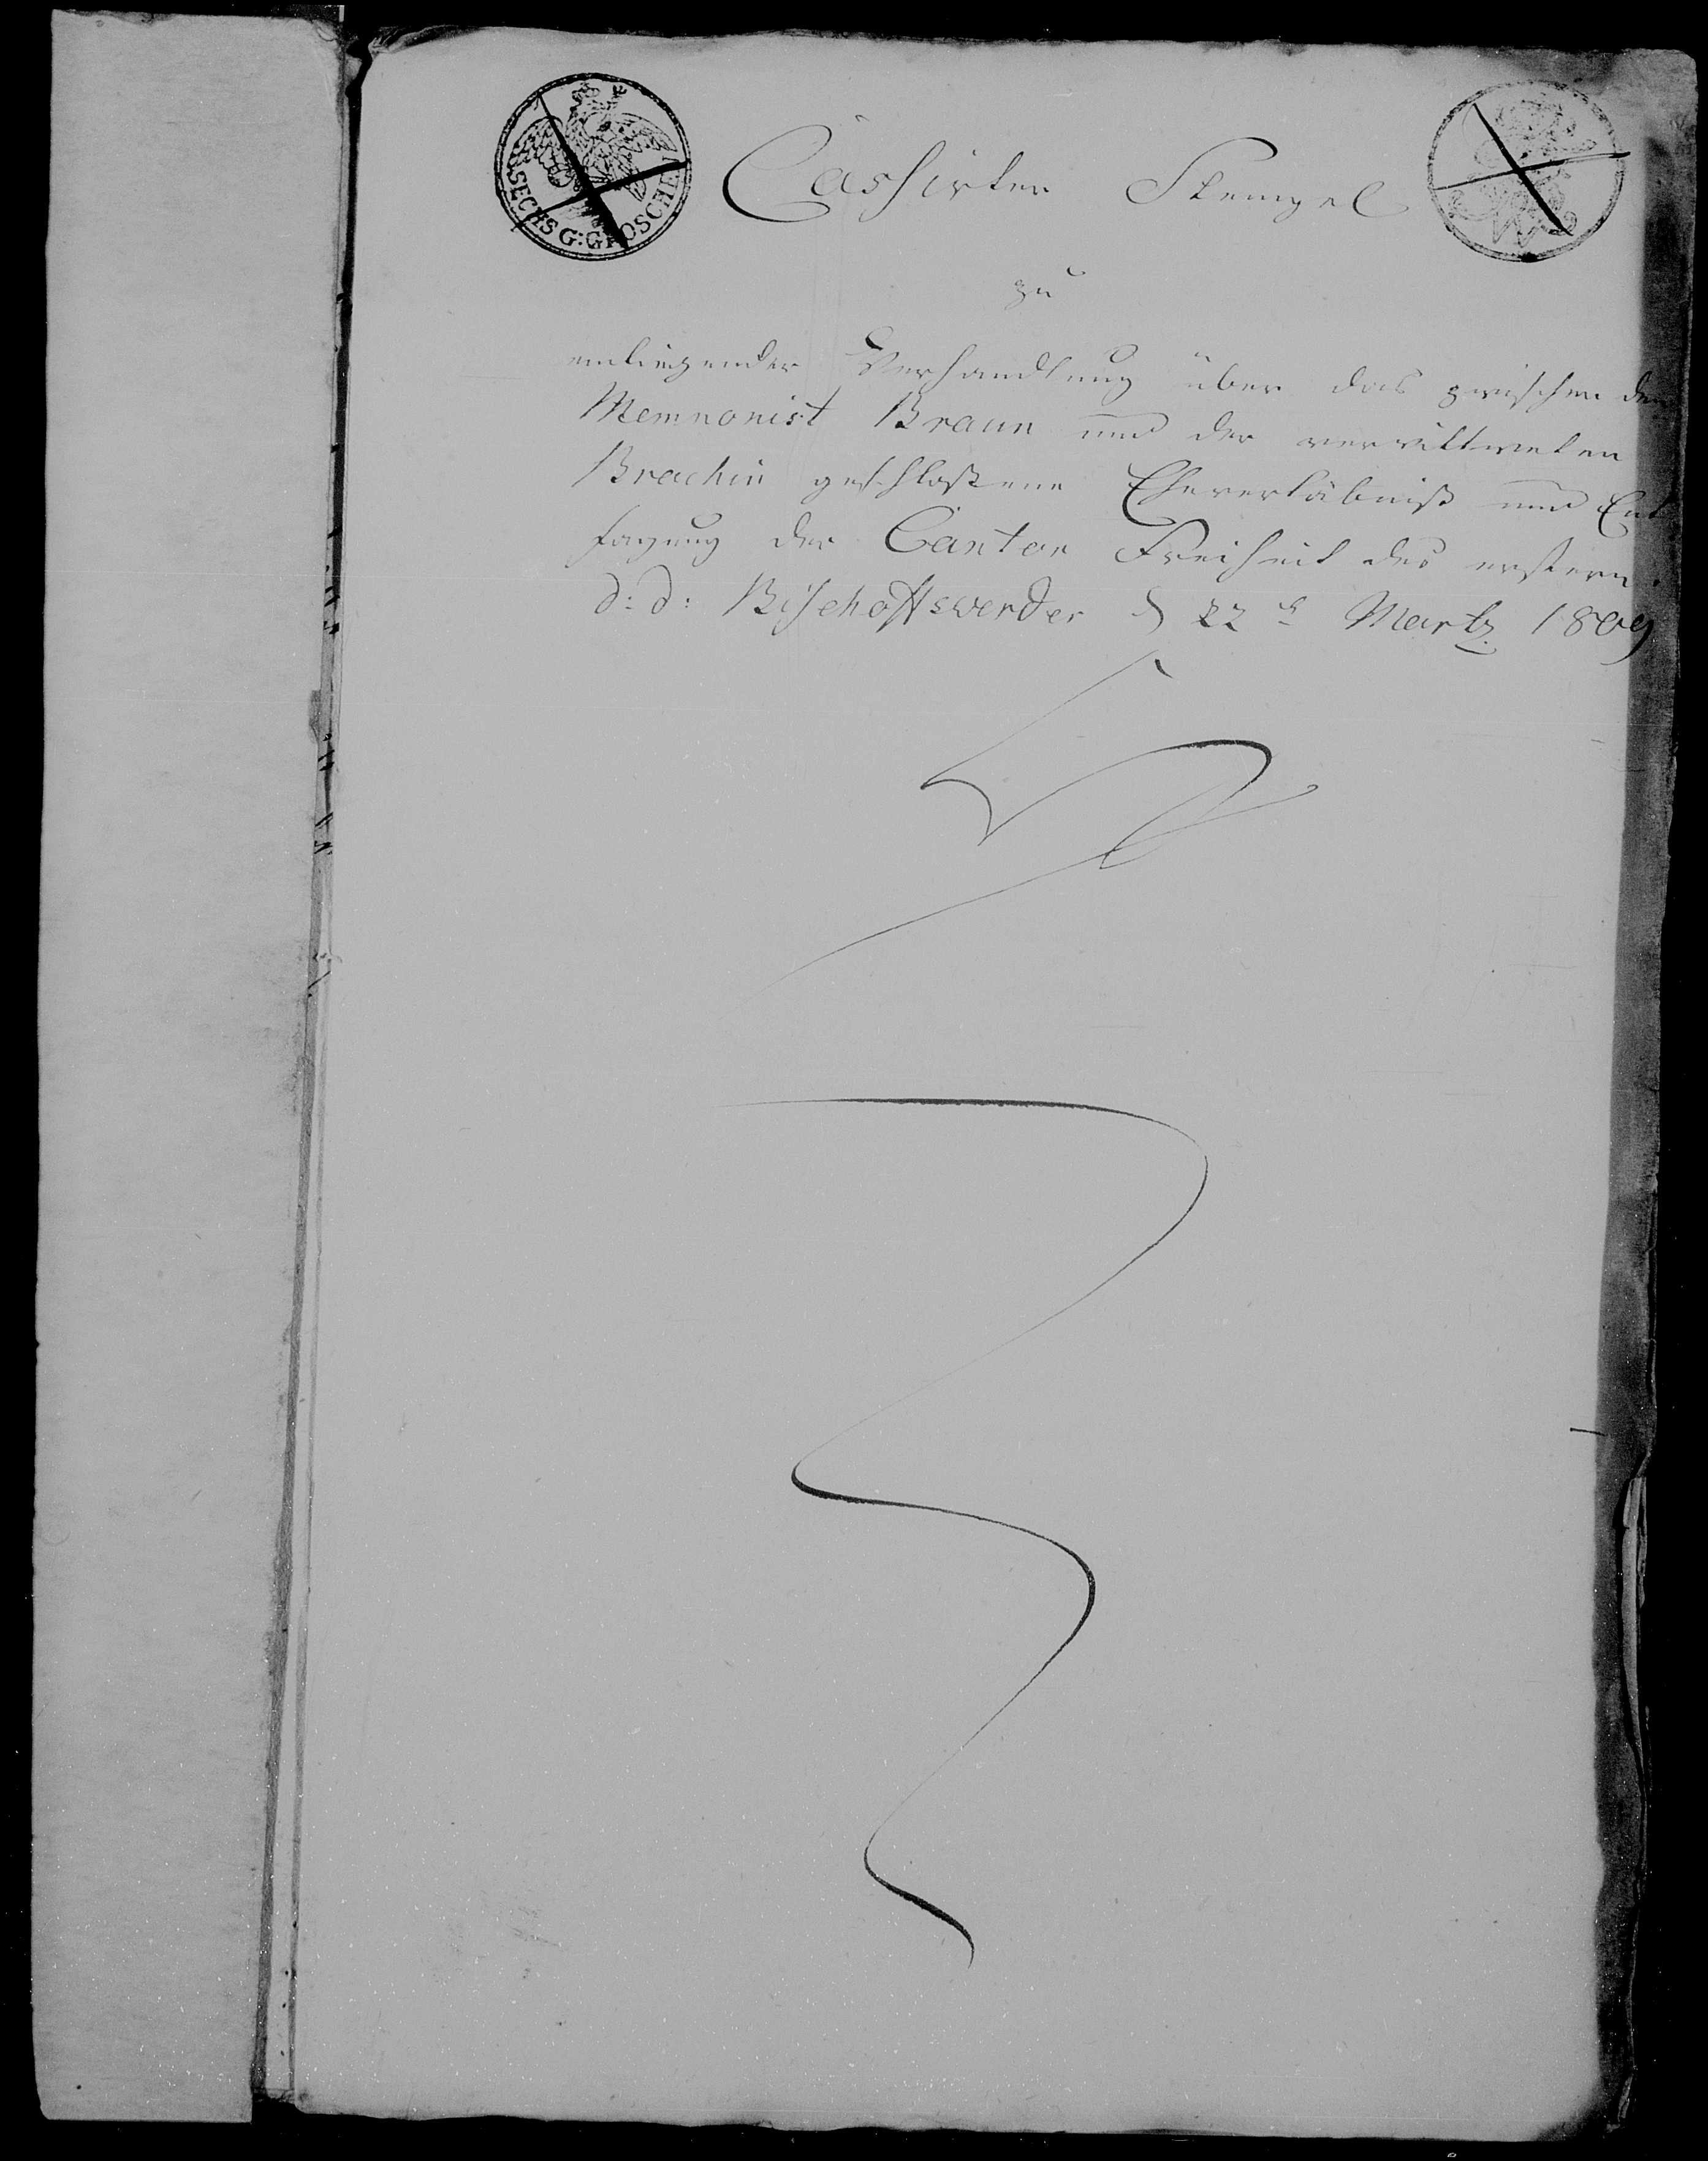 SECHS G: GROSCHEN
Cassirter Stempel
zu
einliegender Verhandlung über das zwischen dem
Memnonist Braun und der verwittweten
Brachin geschloßene Eheverlöbniß und Ent
sagung der Canton Freiheit des erstern.
d: d: Bischoffswerder d 22t Martz 1809